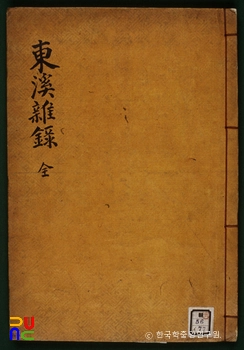 東溪雜錄
全
© 한국학중앙연구원